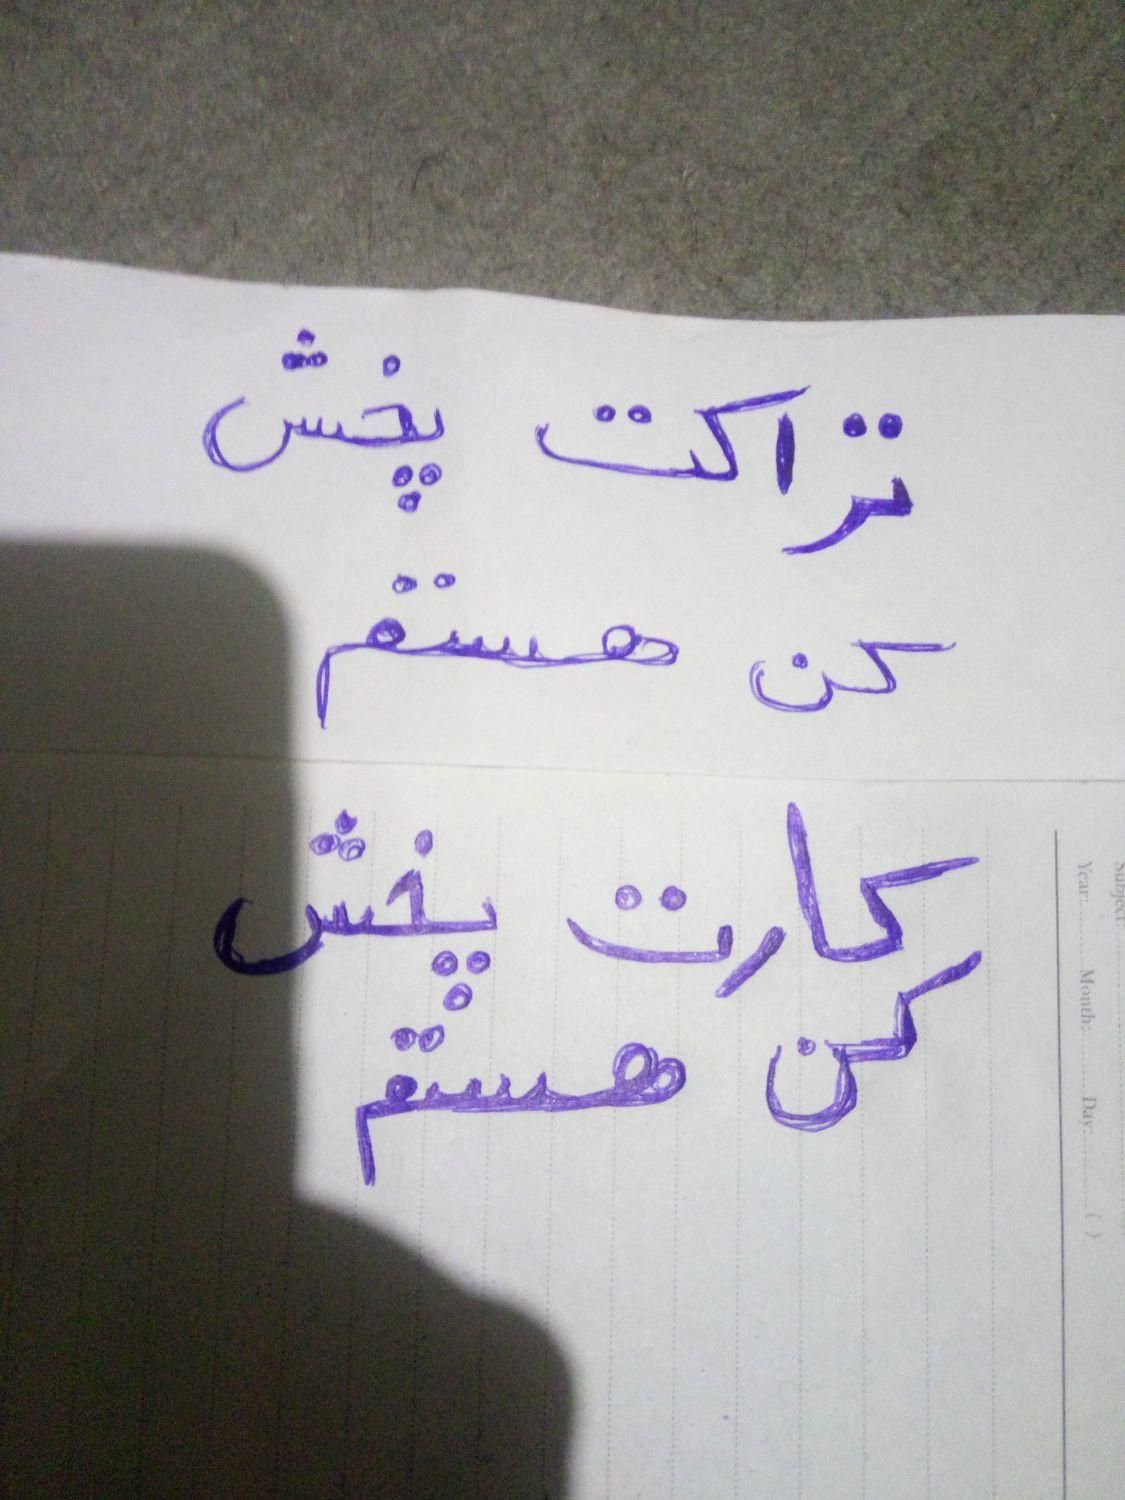 تراکت پخش
کن هستم
کارت پخش
کن هستم
Subject:
Year: Month: Day: ( )